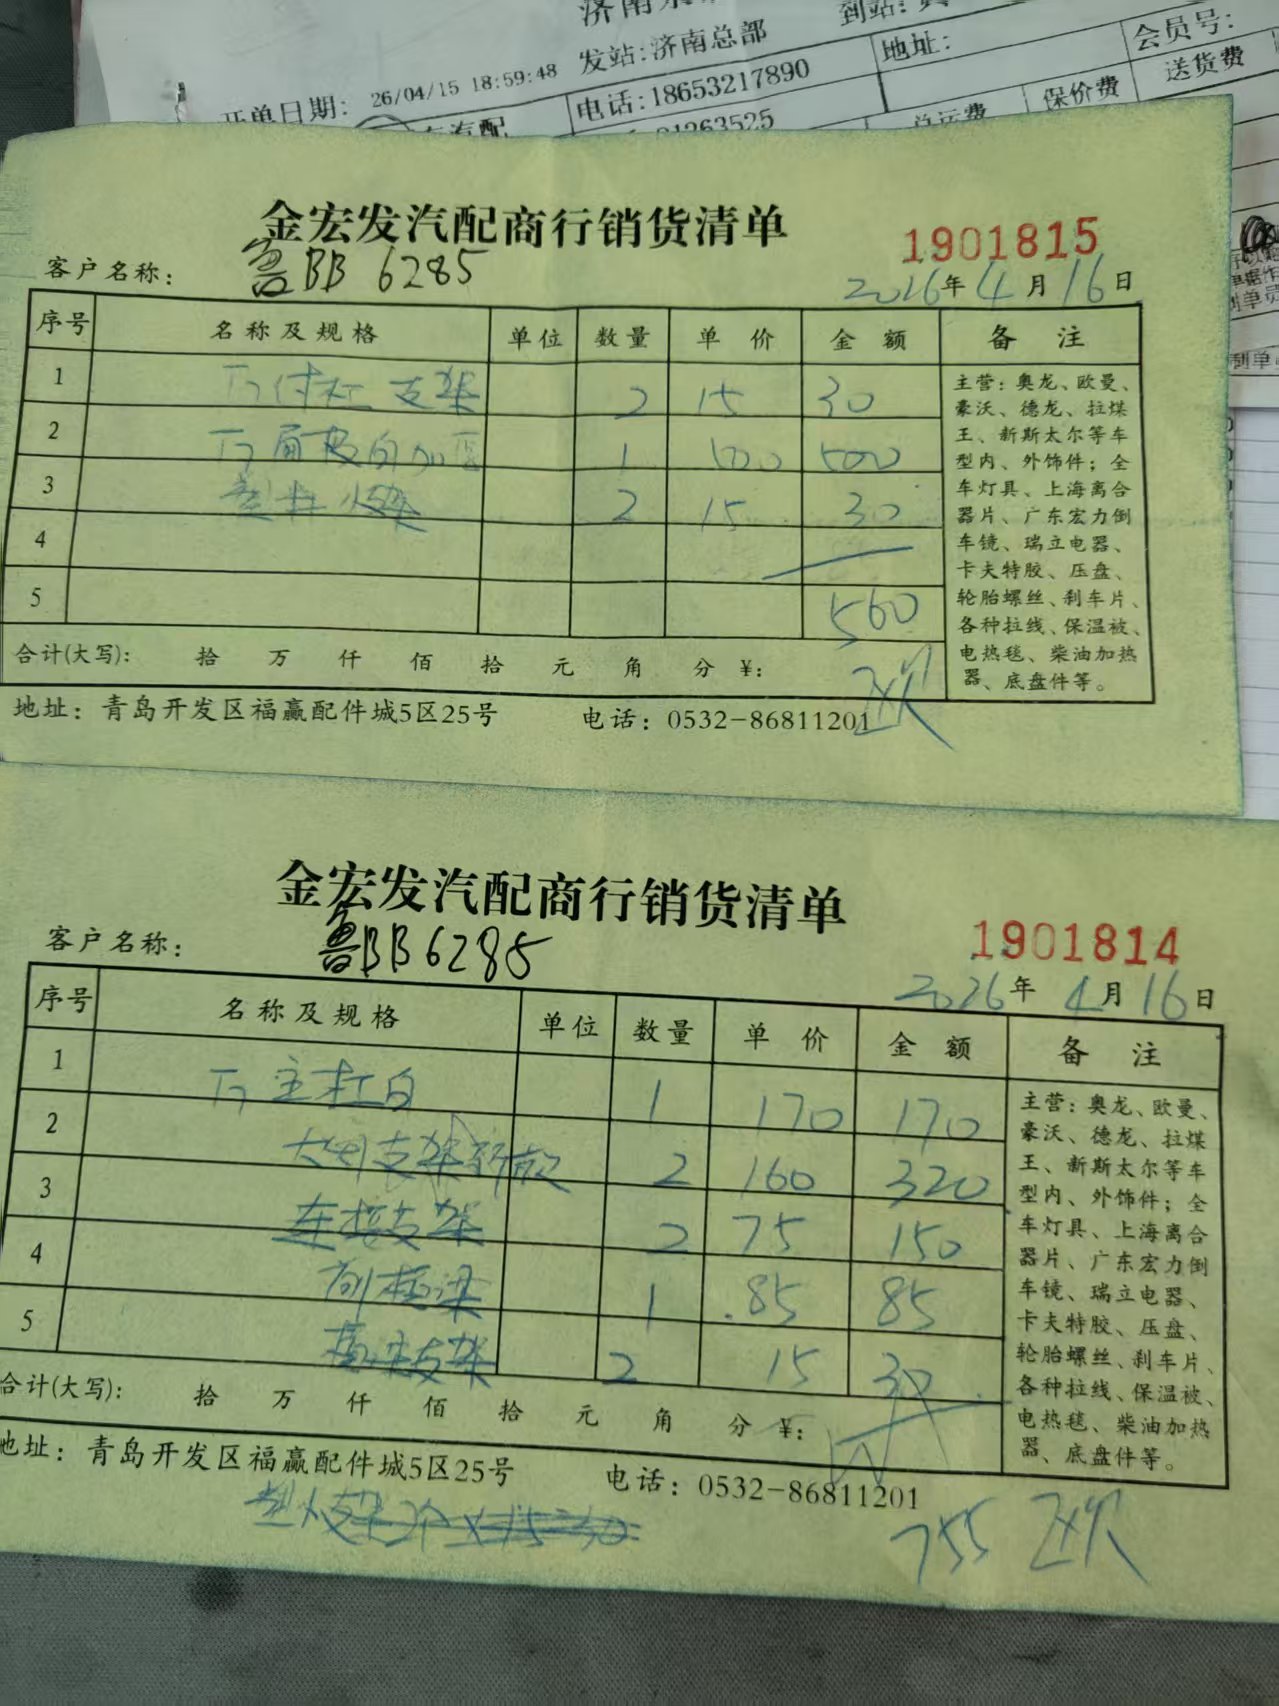 济南
发站:济南总部
到站:
开单日期: 26/04/15 18:59:48
电话:18653217890
地址:
会员号:
汽配
01263525
总运费
保价费
送货费
金宏发汽配商行销货清单
1901815
客户名称: 鲁BB 6285
2026年4月16日
序号 名称及规格 单位 数量 单价 金额 备注
1 T7付杠支架 2 15 30
2 1 500 500
3 塑料小支架 2 15 30
4
5 560
主营:奥龙、欧曼、
豪沃、德龙、拉煤
王、新斯太尔等车
型内、外饰件;全
车灯具、上海离合
器片、广东宏力倒
车镜、瑞立电器、
卡夫特胶、压盘、
轮胎螺丝、刹车片、
各种拉线、保温被、
电热毯、柴油加热
器、底盘件等。
合计(大写): 拾 万 仟 佰 拾 元 角 分 ¥:
欠
地址:青岛开发区福赢配件城5区25号 电话:0532-86811201
金宏发汽配商行销货清单
1901814
客户名称: 鲁BB6285
2026年4月16日
序号 名称及规格 单位 数量 单价 金额 备注
1 T7主杠白 1 170 170
2 支架新款 2 160 320
3 连接支架 2 75 150
4 前横梁 1 85 85
5 支架 2 15 30
主营:奥龙、欧曼、
豪沃、德龙、拉煤
王、新斯太尔等车
型内、外饰件;全
车灯具、上海离合
器片、广东宏力倒
车镜、瑞立电器、
卡夫特胶、压盘、
轮胎螺丝、刹车片、
各种拉线、保温被、
电热毯、柴油加热
器、底盘件等。
合计(大写): 拾 万 仟 佰 拾 元 角 分 ¥:
地址:青岛开发区福赢配件城5区25号 电话:0532-86811201
755 欠